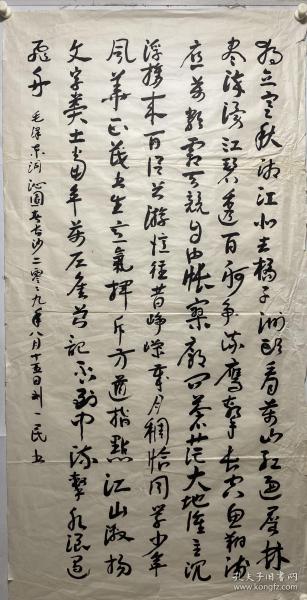 独立寒秋湘江北去橘子洲頭看萬山红遍层林
尽染漫江碧透百舸争流鹰擊长空鱼翔浅
底萬類霜天競自由怅寥廓问苍茫大地谁主沉
浮携来百侣曾游忆往昔峥嵘岁月稠恰同学少年
风華正茂书生意氣挥斥方遒指點江山激扬
文字粪土当年萬户侯曾記否到中流擊水浪遏
飞舟
毛泽东词沁园春长沙二零一九年八月十五日刘一民书
孔夫子旧书网